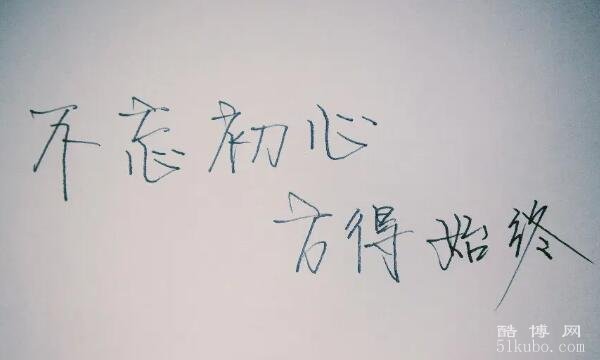 不忘初心
方得始终
酷博网
51kubo.com